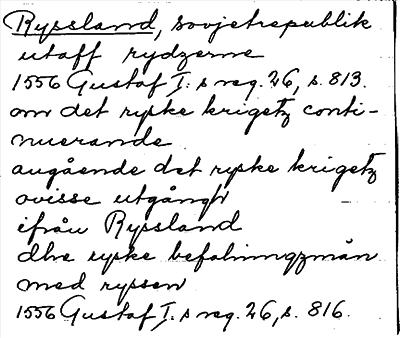 Ryssland, sovjetrepublik
utaff rydzerne
1556 Gustaf I:s reg. 26, s. 813.
om det ryske krigetz conti-
nuerande
angående det ryske krigetz
ovisse utgångh
ifrån Ryssland
dhe ryske befalningzmän
med ryssen
1556 Gustaf I:s reg. 26, s. 816.